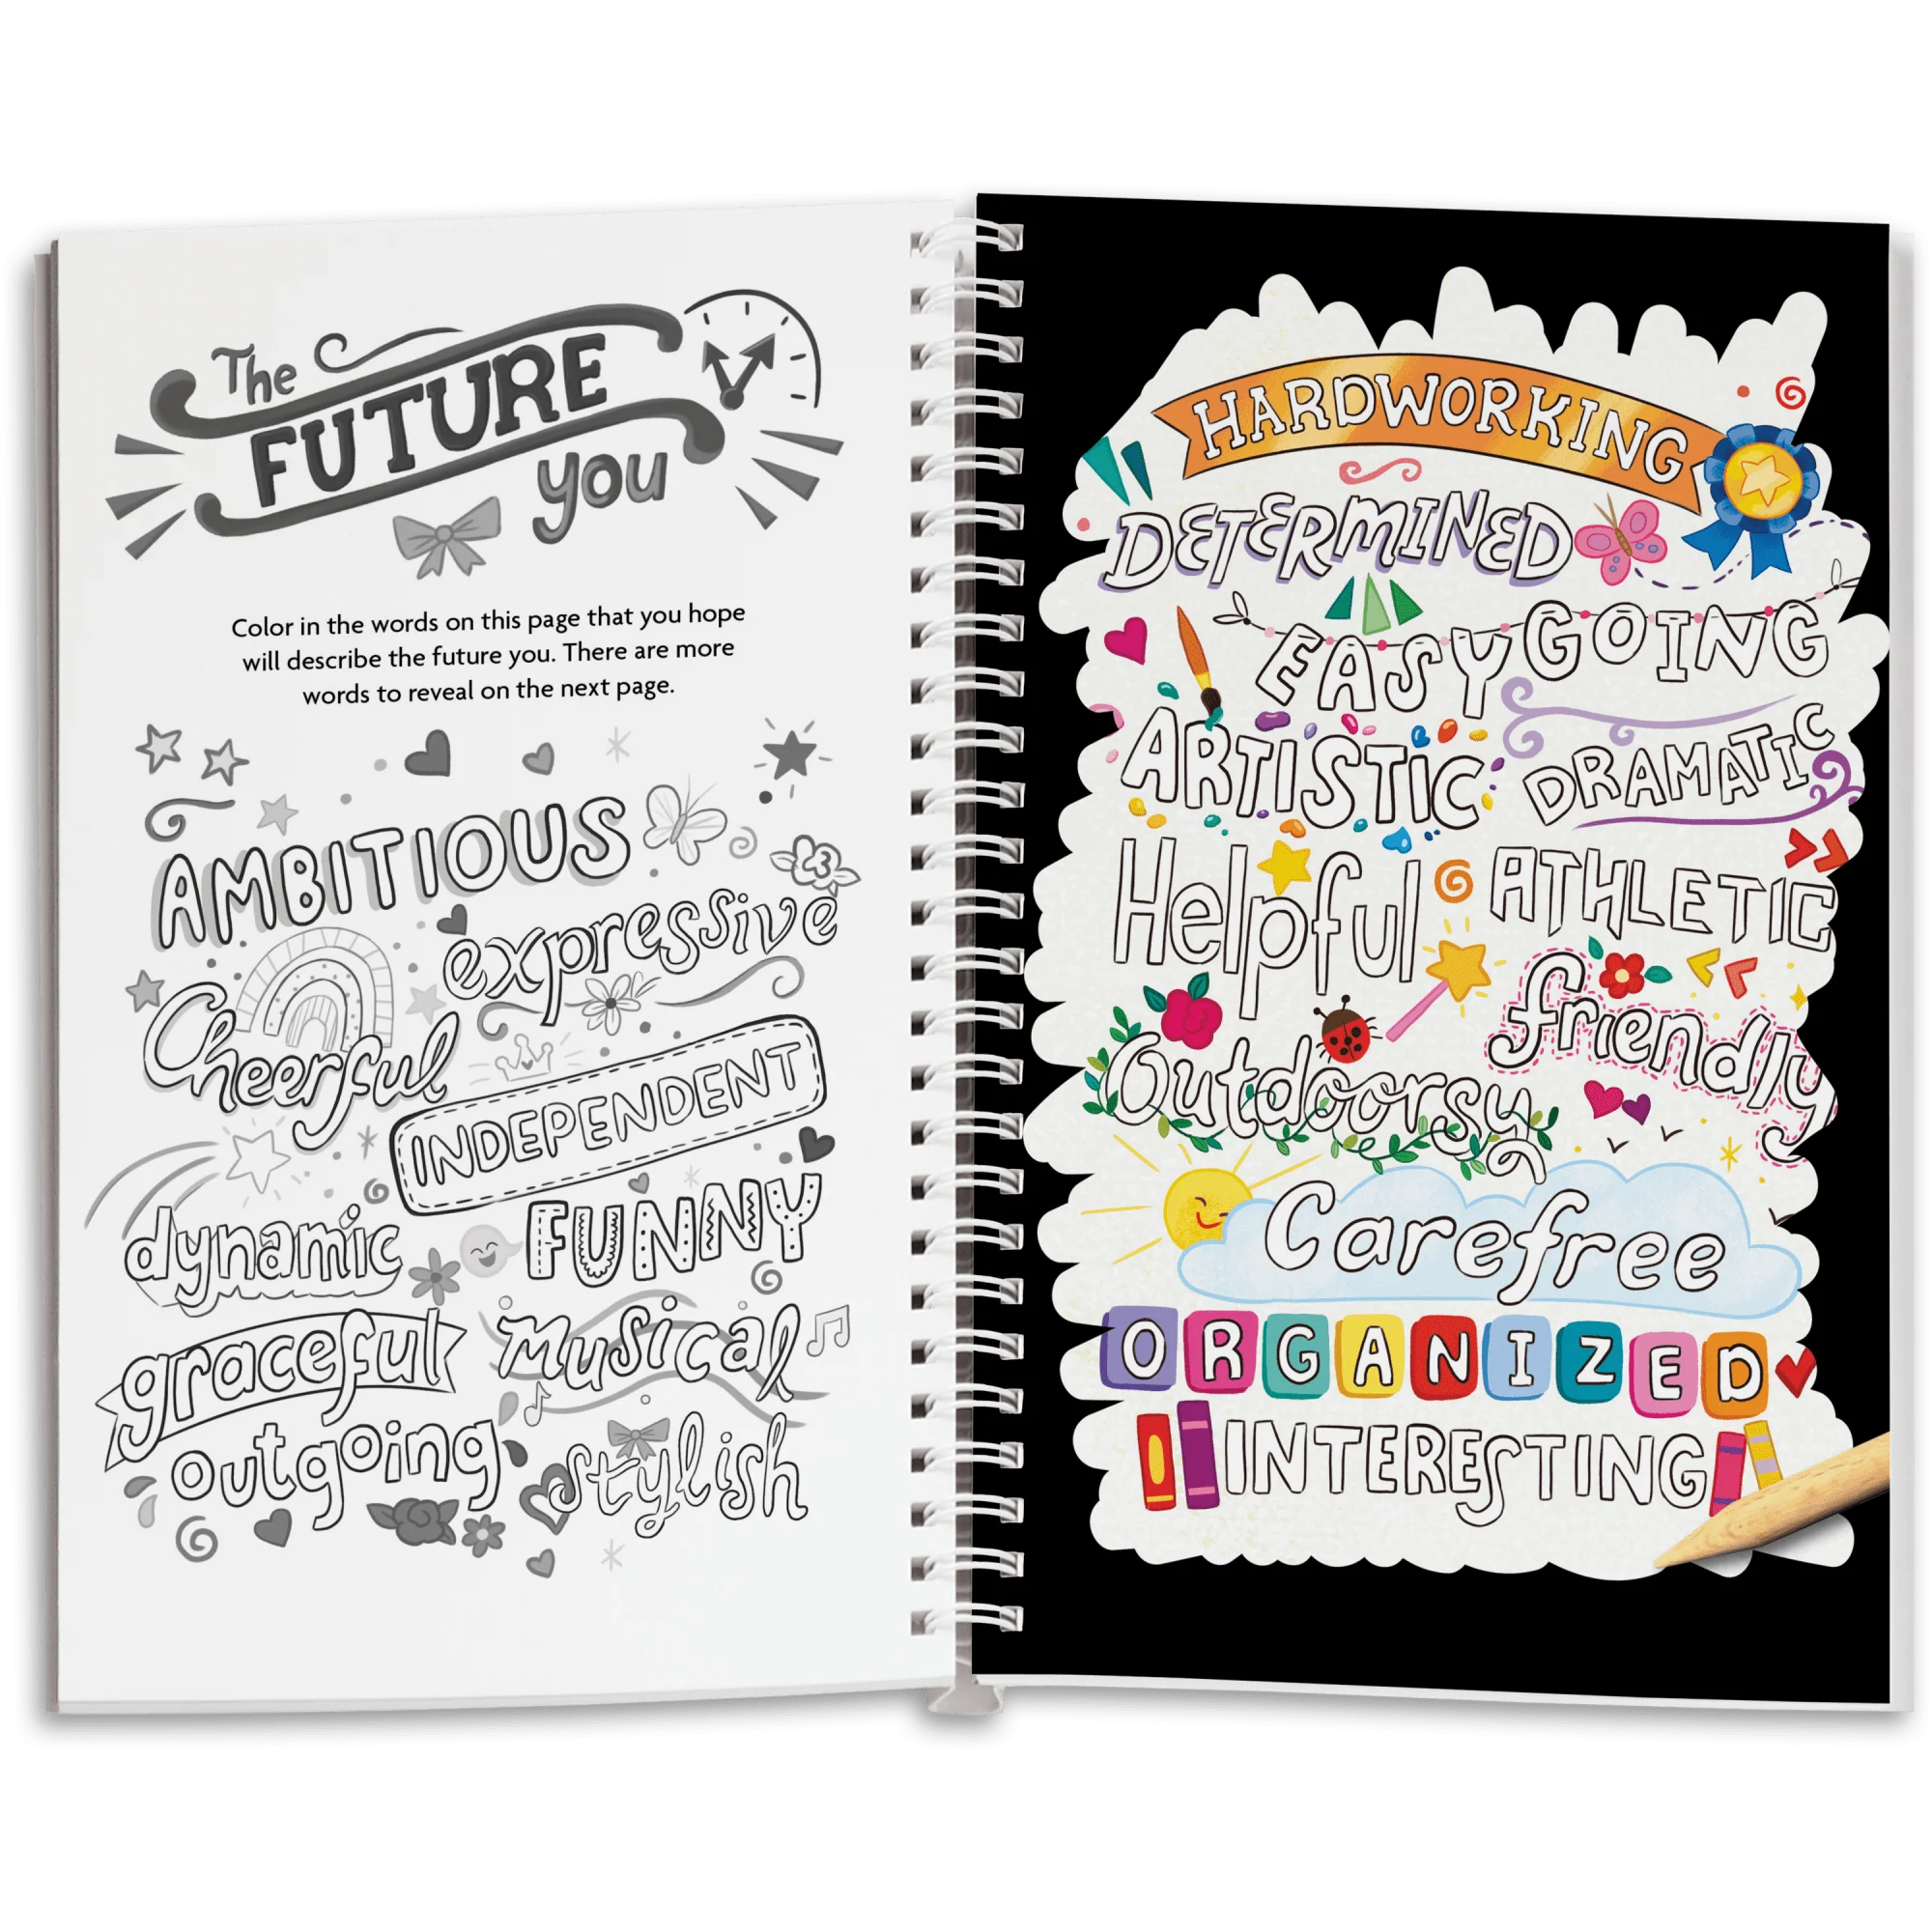 The
FUTURE
you
Color in the words on this page that you hope
will describe the future you. There are more
words to reveal on the next page.
AMBITIOUS
expressive
Cheerful
INDEPENDENT
dynamic
FUNNY
graceful
musical
outgoing
stylish
HARDWORKING
DETERMINED
EASYGOING
ARTISTIC
DRAMATIC
Helpful
ATHLETIC
friendly
Outdoorsy
Carefree
ORGANIZED
INTERESTING